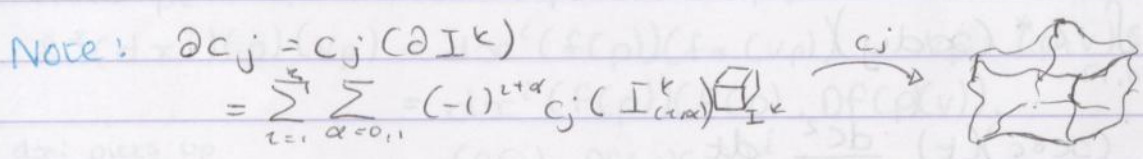 Note: ∂c_j = c_j(∂I^k)
= Σ_{i=1}^{k} Σ_{α=0,1} (-1)^{i+α} c_j(I^k_{(i,α)}) I^k c_j